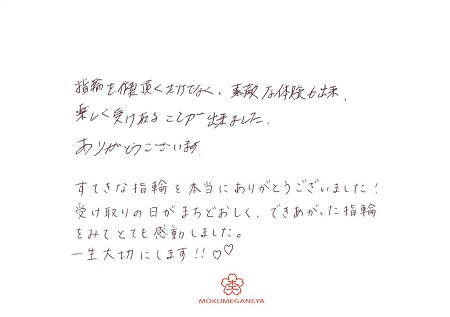 指輪を作製頂くだけでなく、素敵な体験も出来、
楽しく受け取ることが出来ました。
ありがとうございます。
すてきな指輪を本当にありがとうございました！
受け取りの日がまちどおしく、できあがった指輪
をみてとても感動しました。
一生大切にします!!♡♡
MOKUMEGANEYA